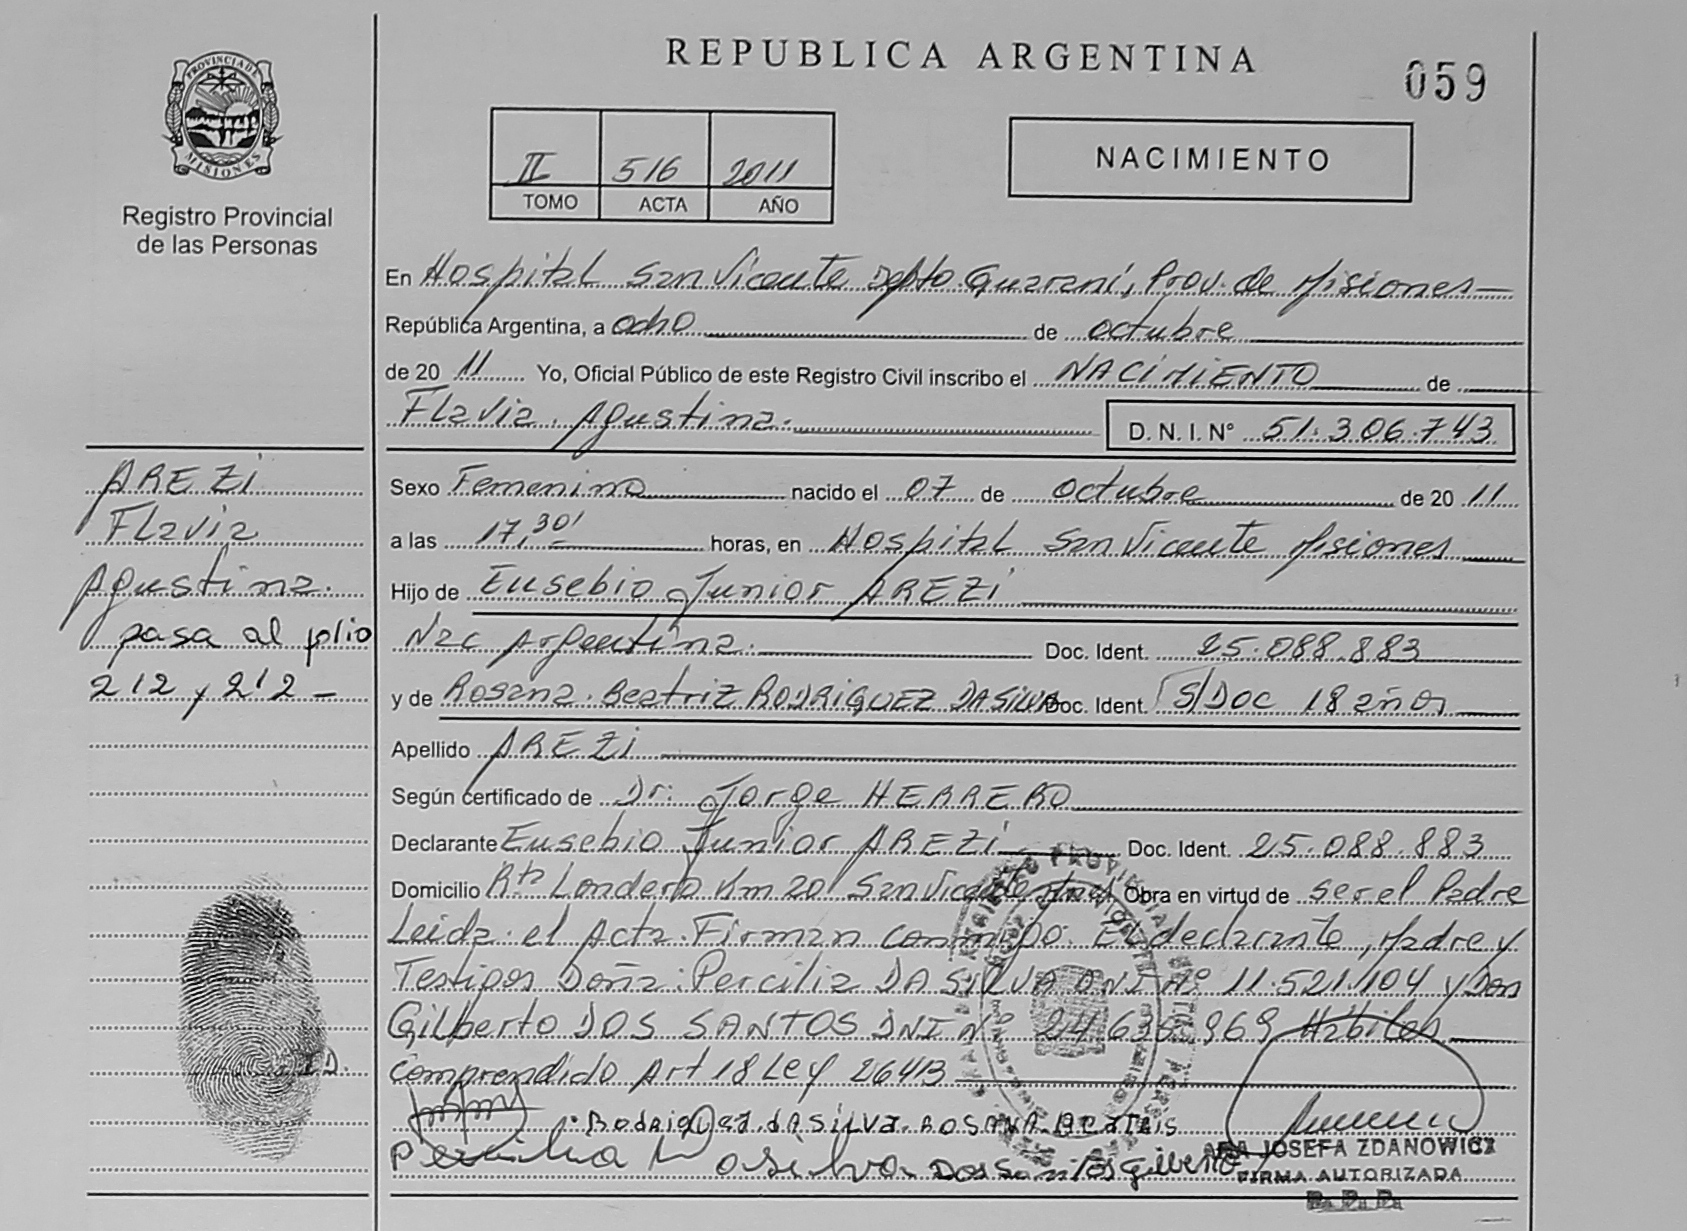 REPUBLICA ARGENTINA
059
PROVINCIA DE MISIONES
Registro Provincial
de las Personas
II 516 2011
TOMO ACTA AÑO
NACIMIENTO
En Hospital San Vicente Dpto. Guaraní, Prov. de Misiones
República Argentina, a ocho de octubre
de 20 11 Yo, Oficial Público de este Registro Civil inscribo el NACIMIENTO de
Flavia Agustina. D. N. I. N° 51.306.743
Sexo Femenino nacido el 07 de octubre de 20 11
a las 17,30' horas, en Hospital San Vicente Misiones
Hijo de Eusebio Junior AREZI
Nac Argentina. Doc. Ident. 25.088.883
y de Rosana Beatriz RODRIGUEZ DA SILVA Doc. Ident. S/DOC 18 años
Apellido AREZI
Según certificado de Dr. Jorge HERRERO
Declarante Eusebio Junior AREZI Doc. Ident. 25.088.883
Domicilio Rta Londero Km 20 San Vicente Obra en virtud de ser el Padre
Leida el Acta Firman conmigo. El declarante, Madre y
Testigos Doña: Percilia DA SILVA DNI Nº 11.521.104 y Don
Gilberto DOS SANTOS DNI Nº Hábiles
comprendido Art 18 Ley 26413
RodRiguez dA Silva ROSANA
da silva Dos Santos gilberto
JOSEFA ZDANOWICZ
FIRMA AUTORIZADA
AREZI
Flavia
Agustina.
pasa al folio
212 y 212
I.D.